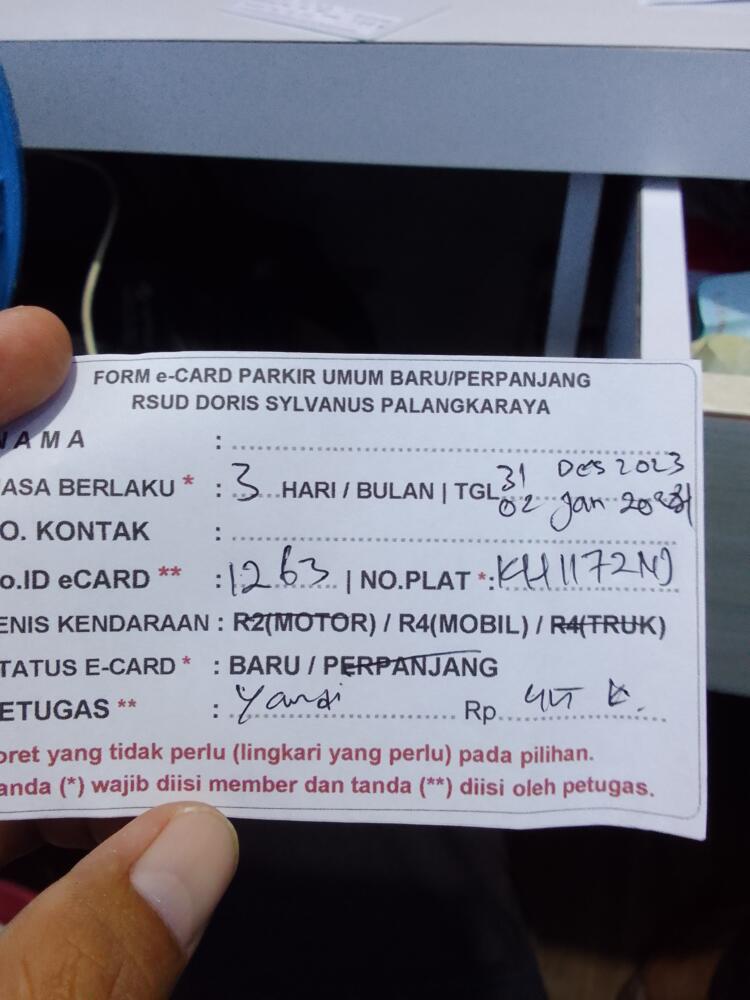 FORM e-CARD PARKIR UMUM BARU/PERPANJANG
RSUD DORIS SYLVANUS PALANGKARAYA
NAMA :
ASA BERLAKU * : 3 HARI / BULAN | TGL 31 DES 2023
02 Jan 2024
O. KONTAK :
o.ID eCARD ** : 1263 | NO.PLAT *: KH 1172 NJ
ENIS KENDARAAN : R2(MOTOR) / R4(MOBIL) / R4(TRUK)
TATUS E-CARD * : BARU / PERPANJANG
ETUGAS ** : Yandi Rp
oret yang tidak perlu (lingkari yang perlu) pada pilihan.
anda (*) wajib diisi member dan tanda (**) diisi oleh petugas.